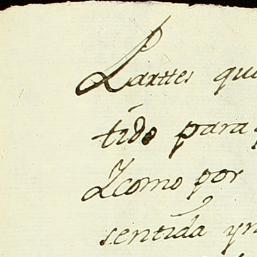 Partes que
tido para
Zcomo por
sentida yn